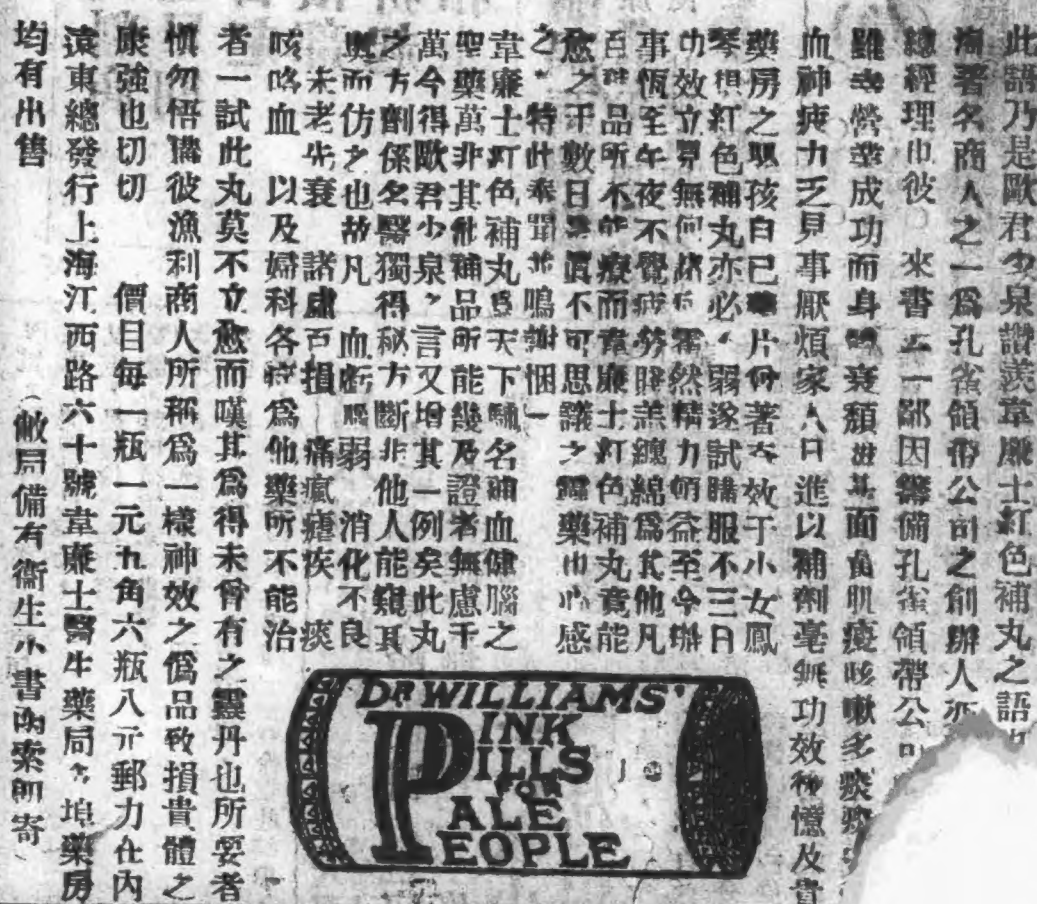 此語乃是歐君少泉讚羨韋廉士紅色補丸之語
海著名商人之一爲孔雀領帶公司之創辦人
總經理也彼 來書云一鄙因籌備孔雀領帶公司
雖幸營業成功而身體衰頹 其面負肌瘦咳嗽多痰
血神疲力乏見事厭煩家人日進以補劑毫無功效 憶及貴
藥房之嬰孩自己藥片 著奇效于小女鳳
琴想紅色補丸亦必 弱遂試購服不三日
功效立見無何 霍然精力頓益至今辦
事恆至午夜不覺疲勞 纏綿爲其他凡
百 品所不能療而韋廉士紅色補丸竟能
愈之于數日 眞不可思議之 藥也心感
之 特此奉聞並鳴謝悃
韋廉士紅色補丸爲天下馳名補血健腦之
聖藥萬非其他補品所能幾及證者無慮千
萬今得歐君少泉 言又增其一例矣此丸
之方劑係名醫獨得秘方斷非他人能窺其
奧而仿之也故凡 血虧 弱 消化不良
未老先衰 諸虛百損 痛瘋瘧疾 痰
咳咯血 以及婦科各 爲他藥所不能治
者一試此丸莫不立愈而嘆其爲得未曾有之靈丹也所要者
愼勿悟購彼漁利商人所稱爲一樣神效之僞品致損貴體之
康強也切切 價目每一瓶一元五角六瓶八元郵力在內
遠東總發行上海江西路六十號韋廉士醫生藥局各埠藥房
均有出售 （敝局備有衛生小書函索卽寄
DR WILLIAMS'
PINK
PILLS
FOR
PALE
PEOPLE